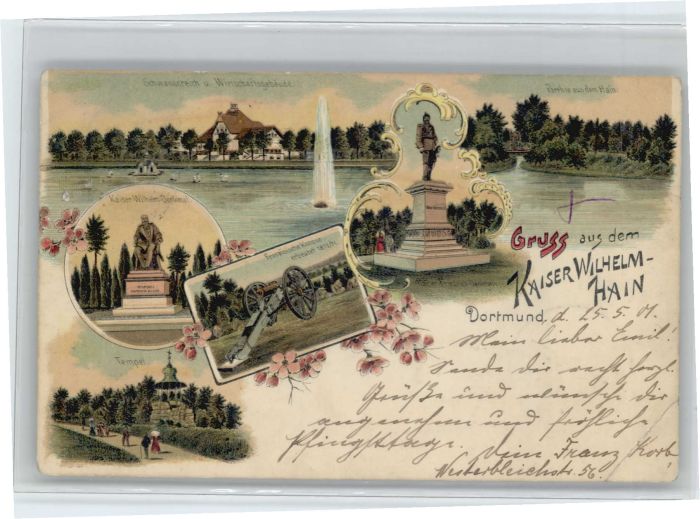 Schwanenteich u. Wirtschaftsgebäude.
Parthie aus dem Hain.
Kaiser Wilhelm-Denkmal
Französische Kanone
erbeutet 1870/71.
Tempel
Gruss aus dem
KAISER WILHELM-
HAIN
Dortmund, d. 25.5.01.
Mein lieber Emil!
Sende dir recht herzl.
Grüße und wünsche dir
angenehme und fröhliche
Pfingsttage. Dein Franz Korb
Westerbleichstr. 56.